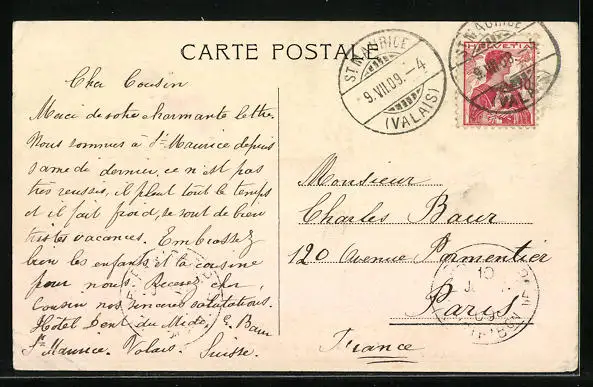 CARTE POSTALE
Cher Cousin
Merci de votre charmante lettre.
Nous sommes à St Maurice depuis
samedi dernier, ce n'est pas
très reussis, il pleut tout le temps
et il fait froid, se sont de bien
tristes vacances. Embrassez
bien les enfants et la cousine
pour nous. Recevez cher
cousin nos sincères salutations.
Hôtel Dent du Midi, E. Baur
St Maurice. Valais. Suisse.
ST MAURICE
9.VII.09.–4
(VALAIS)
ST MAURICE
9.VII.09.
VAL
HELVETIA
Monsieur
Charles Baur
120 Avenue Parmentier
Paris
France
10
09